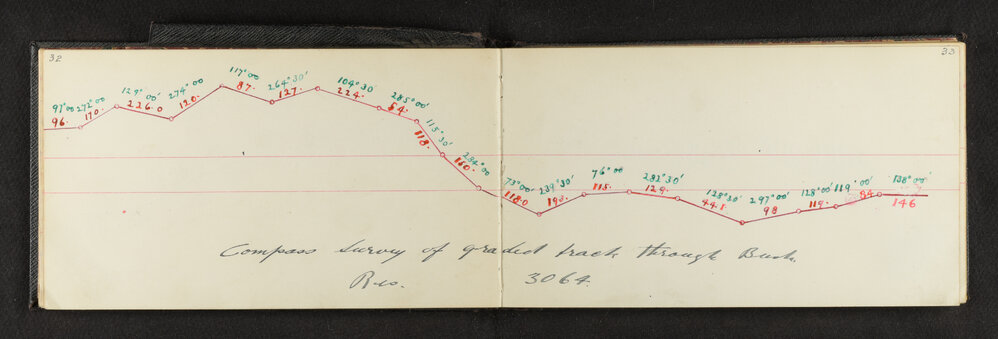 32
33
97°00 272°00 129°00' 274°00 117°00 264°30' 104°30 285°00' 115°30' 284°00 73°00' 239°30' 76°00 282°30' 128°30' 297°00' 128°00' 119°00' 138°00'
96. 170. 226.0 120. 87. 127. 224. 54. 118. 150. 118.0 193. 115. 129. 98 119. 84. 146
Compass Survey of graded track through Bush.
Res. 3064.